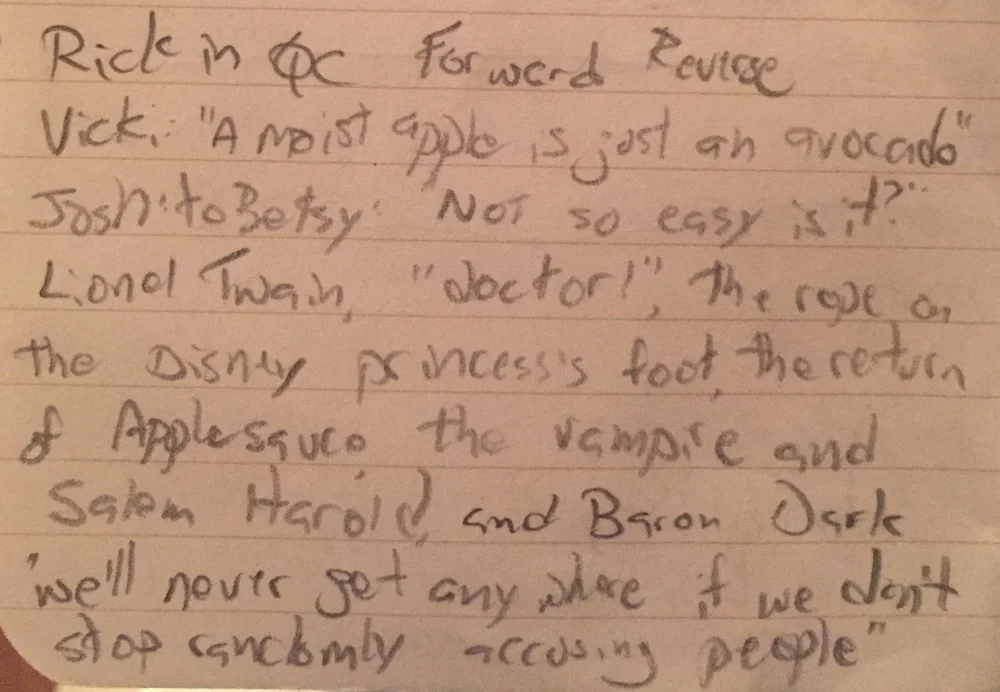 Rick in QC Forward Reverse
Vicki: "A moist apple is just an avocado"
Josh: to Betsy: "Not so easy is it?"
Lionel Twain, "doctor!", The rope on
the Disney princess's foot, the return
of Applesauce the vampire and
Salem Harold, and Baron Dark
"we'll never get anywhere if we don't
stop randomly accusing people"